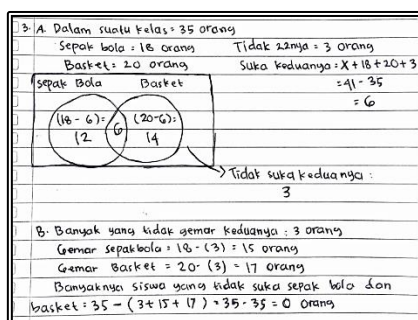 3. A. Dalam suatu kelas = 35 orang
Sepak bola = 18 orang Tidak 22nya = 3 orang
Basket = 20 orang Suka Keduanya = X + 18 + 20 + 3
= 41 - 35
= 6
Sepak Bola Basket
(18 - 6) = (20 - 6) =
12 6 14
Tidak suka keduanya :
3
B. Banyak yang tidak gemar keduanya : 3 orang
Gemar sepakbola = 18 - (3) = 15 orang
Gemar Basket = 20 - (3) = 17 orang
Banyaknya siswa yang tidak suka sepak bola dan
basket = 35 - (3 + 15 + 17) = 35 - 35 = 0 orang